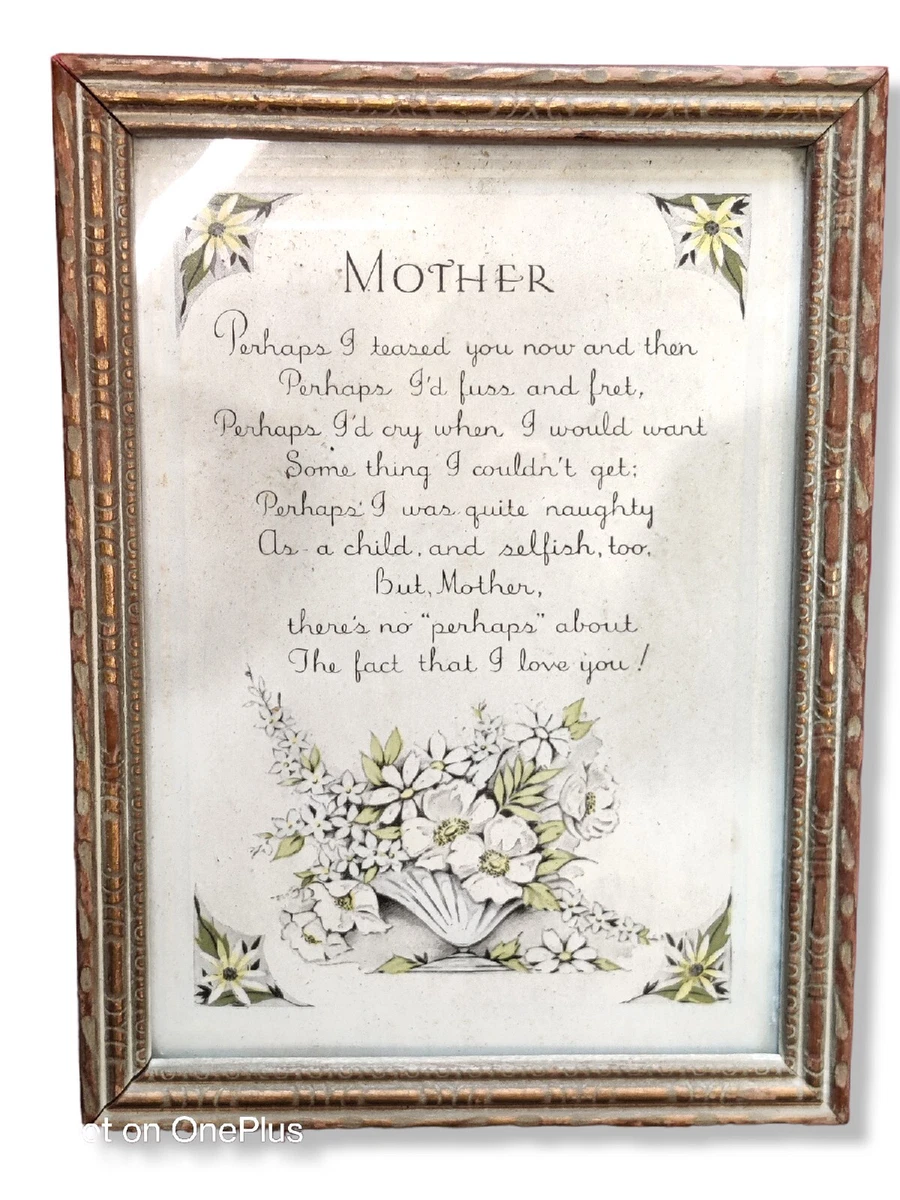 MOTHER
Perhaps I teased you now and then
Perhaps I'd fuss and fret,
Perhaps I'd cry when I would want
Some thing I couldn't get;
Perhaps I was quite naughty
As a child, and selfish, too.
But, Mother,
there's no "perhaps" about
The fact that I love you!
ot on OnePlus